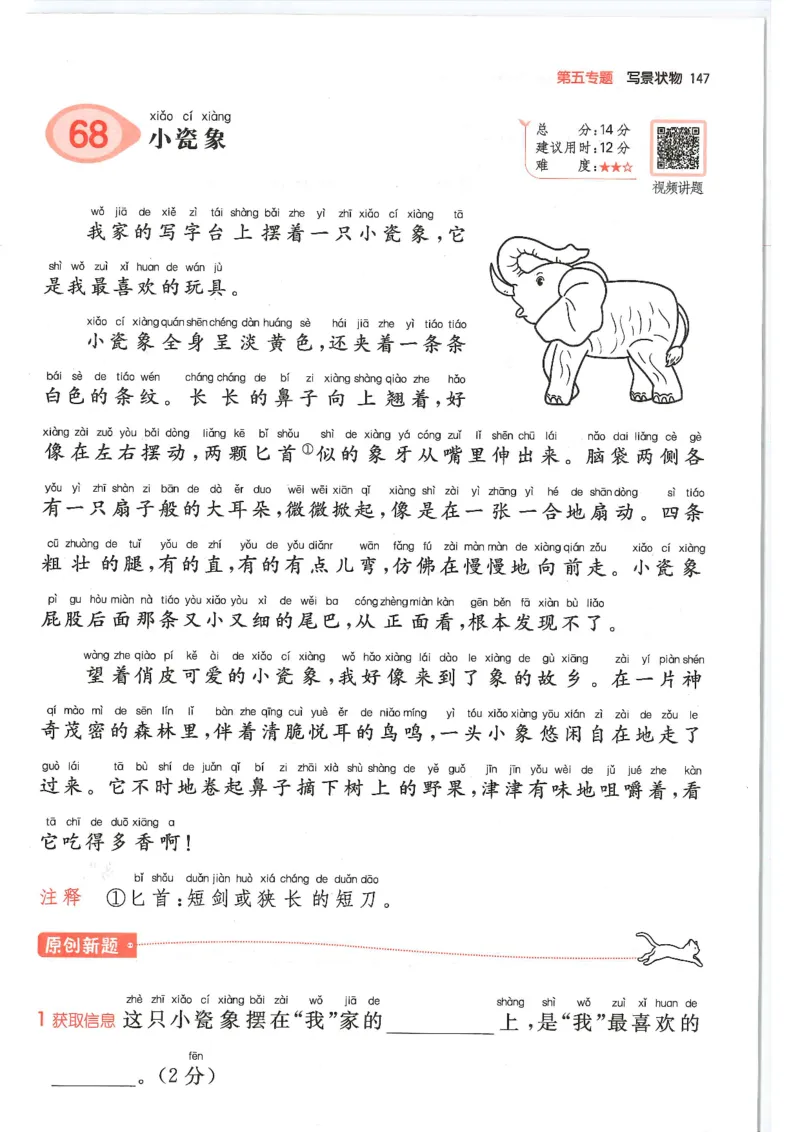 第五专题 写景状物 147
xiǎo cí xiàng
68 小瓷象
总 分:14分
建议用时:12分
难 度:★★☆
视频讲题
wǒ jiā de xiě zì tái shàng bǎi zhe yì zhī xiǎo cí xiàng tā
我家的写字台上摆着一只小瓷象,它
shì wǒ zuì xǐ huan de wán jù
是我最喜欢的玩具。
xiǎo cí xiàng quán shēn chéng dàn huáng sè hái jiā zhe yì tiáo tiáo
小瓷象全身呈淡黄色,还夹着一条条
bái sè de tiáo wén cháng cháng de bí zi xiàng shàng qiào zhe hǎo
白色的条纹。长长的鼻子向上翘着,好
xiàng zài zuǒ yòu bǎi dòng liǎng kē bǐ shǒu shì de xiàng yá cóng zuǐ lǐ shēn chū lái nǎo dai liǎng cè gè
像在左右摆动,两颗匕首①似的象牙从嘴里伸出来。脑袋两侧各
yǒu yì zhī shàn zi bān de dà ěr duo wēi wēi xiān qǐ xiàng shì zài yì zhāng yì hé de shān dòng sì tiáo
有一只扇子般的大耳朵,微微掀起,像是在一张一合地扇动。四条
cū zhuàng de tuǐ yǒu de zhí yǒu de yǒu diǎnr wān fǎng fú zài màn màn de xiàng qián zǒu xiǎo cí xiàng
粗壮的腿,有的直,有的有点儿弯,仿佛在慢慢地向前走。小瓷象
pì gu hòu miàn nà tiáo yòu xiǎo yòu xì de wěi ba cóng zhèng miàn kàn gēn běn fā xiàn bù liǎo
屁股后面那条又小又细的尾巴,从正面看,根本发现不了。
wàng zhe qiào pí kě ài de xiǎo cí xiàng wǒ hǎo xiàng lái dào le xiàng de gù xiāng zài yí piàn shén
望着俏皮可爱的小瓷象,我好像来到了象的故乡。在一片神
qí mào mì de sēn lín lǐ bàn zhe qīng cuì yuè ěr de niǎo míng yì tóu xiǎo xiàng yōu xián zì zài de zǒu le
奇茂密的森林里,伴着清脆悦耳的鸟鸣,一头小象悠闲自在地走了
guò lái tā bù shí de juǎn qǐ bí zi zhāi xià shù shàng de yě guǒ jīn jīn yǒu wèi de jǔ jué zhe kàn
过来。它不时地卷起鼻子摘下树上的野果,津津有味地咀嚼着,看
tā chī de duō xiāng a
它吃得多香啊!
bǐ shǒu duǎn jiàn huò xiá cháng de duǎn dāo
注释 ①匕首:短剑或狭长的短刀。
原创新题
zhè zhī xiǎo cí xiàng bǎi zài wǒ jiā de shàng shì wǒ zuì xǐ huan de
1 获取信息 这只小瓷象摆在“我”家的__________上,是“我”最喜欢的
fēn
________。(2分)